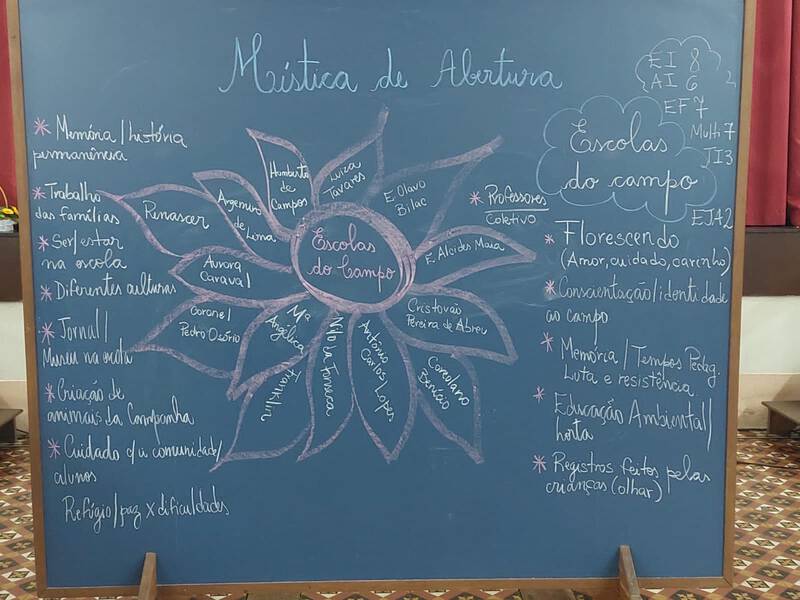 Mística de Abertura
EI 8
AI 6
EF 7
Multi 7
JI 3
EJA 2
Escolas
do campo
* Memória / história
permanência
* Trabalho
das famílias
* Ser/estar
na escola
* Diferentes culturas
* Jornal /
Museu na escola
* Criação de
animais da Campanha
* Cuidado c/a comunidade/
alunos
Refúgio / paz x dificuldades
Escolas
do Campo
Renascer
Argemiro
de Lima
Humberto
de
Campos
Luiza
Tavares
E. Olavo
Bilac
E. Alcides Maia
Cristóvão
Pereira de Abreu
Coriolano
Antônio
Carlos Lopes
da Fonseca
Franklin
Mª
Angélica
Coronel
Pedro Osório
Aurora
Caraval
* Professores
Coletivo
* Florescendo
(Amor, cuidado, carinho)
* Conscientação/identidade
ao campo
* Memória / Tempos Pedag.
Luta e resistência
* Educação Ambiental/
horta
* Registros feitos pelas
crianças (olhar)